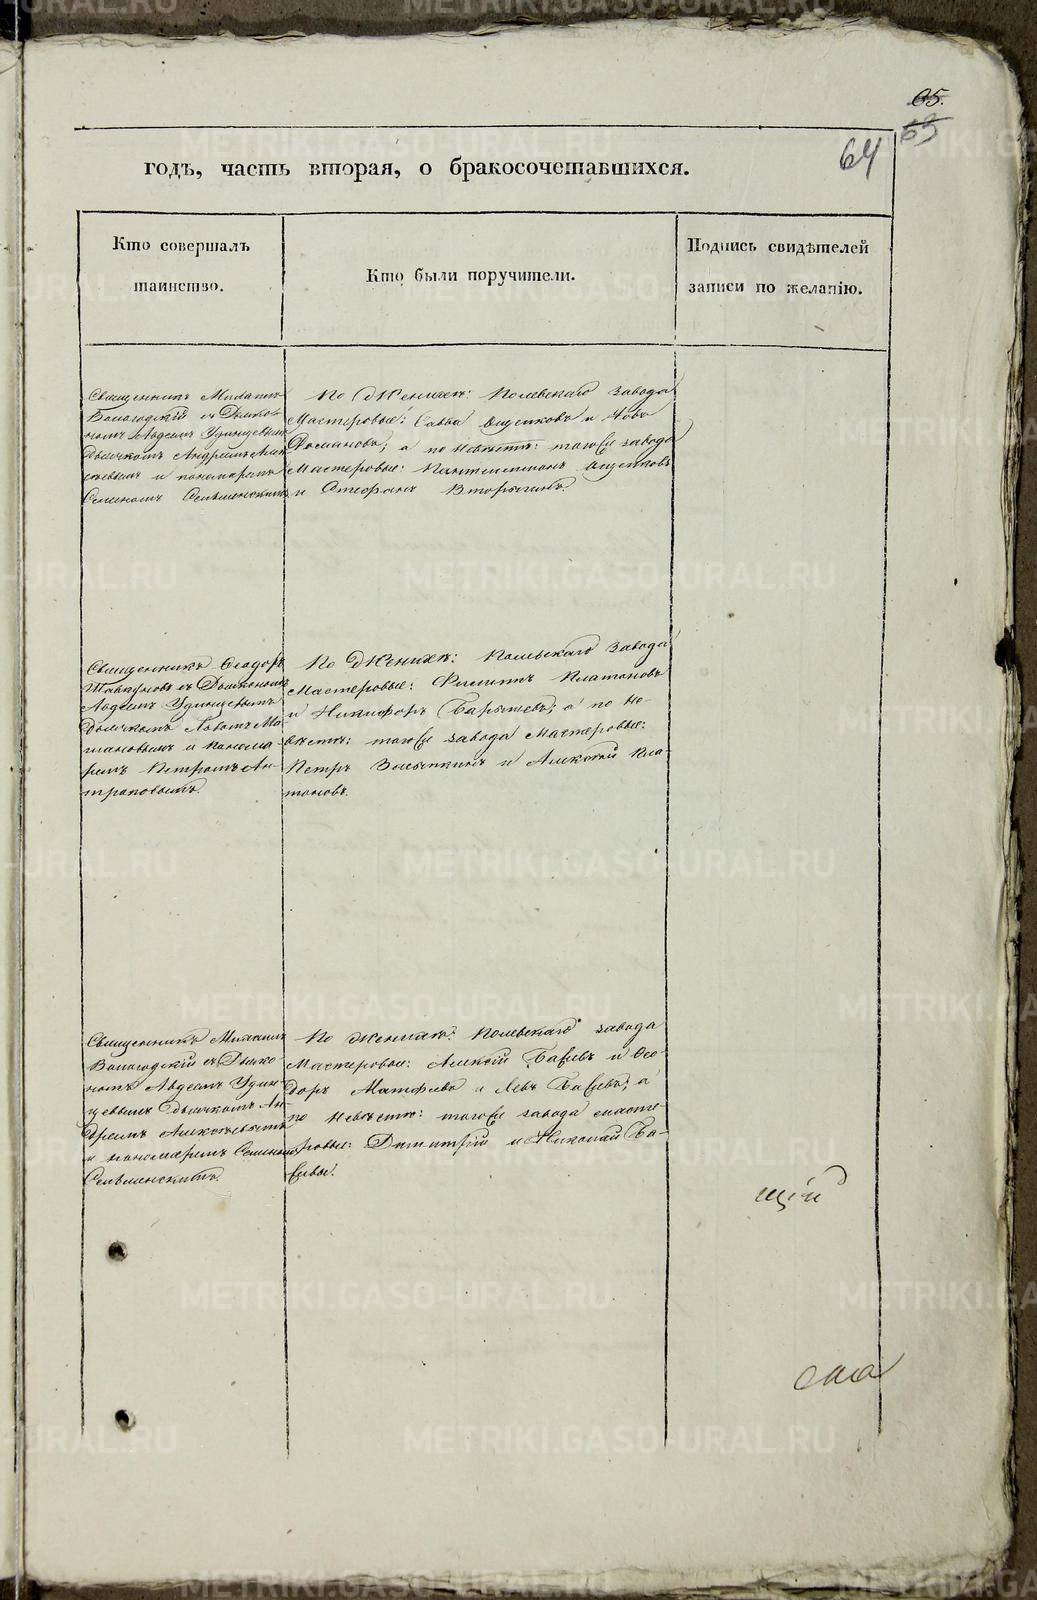 65.
63
64
годъ, часть вторая, о бракосочетавшихся.
Кто совершалъ
таинство.
Кто были поручители.
Подпись свидѣтелей
записи по желанію.
Священникъ Михаилъ
Вологодскій съ Діако-
номъ Авдеемъ Удинцевымъ
Дьячкомъ Андреемъ Алек
сѣевымъ и пономаремъ
Семеномъ Сельменскимъ
По Женихѣ: Полевскаго завода
Мастеровые: Савва и Іовъ
а по Невѣстѣ: тогоже завода
Мастеровые: Пантелеимонъ
и Стефанъ Вторыгинъ.
Священникъ Феодоръ
съ Діакономъ
Авдеемъ Удинцевымъ
Дьячкомъ
и понома-
ремъ Петромъ Ан-
троповымъ.
По Женихѣ: Полевскаго завода
Мастеровые: Филиппъ Платоновъ
и Никифоръ Барышевъ; а по Не-
вѣстѣ: тогоже завода Мастеровые:
Петръ Зюзяпкинъ и Алексѣй Пла-
тоновъ.
Священникъ Михаилъ
Вологодскій съ Діако-
номъ Авдеемъ Удин-
цевымъ Дьячкомъ Ан-
дреемъ Алексѣевымъ
и пономаремъ Семеномъ
Сельменскимъ.
По Женихѣ: Полевскаго завода
Мастеровые: Алексѣй и Фео-
доръ и Левъ а
по Невѣстѣ: тогоже завода масте-
ровые: Димитрій и Николай
щій
METRIKI.GASO-URAL.RU